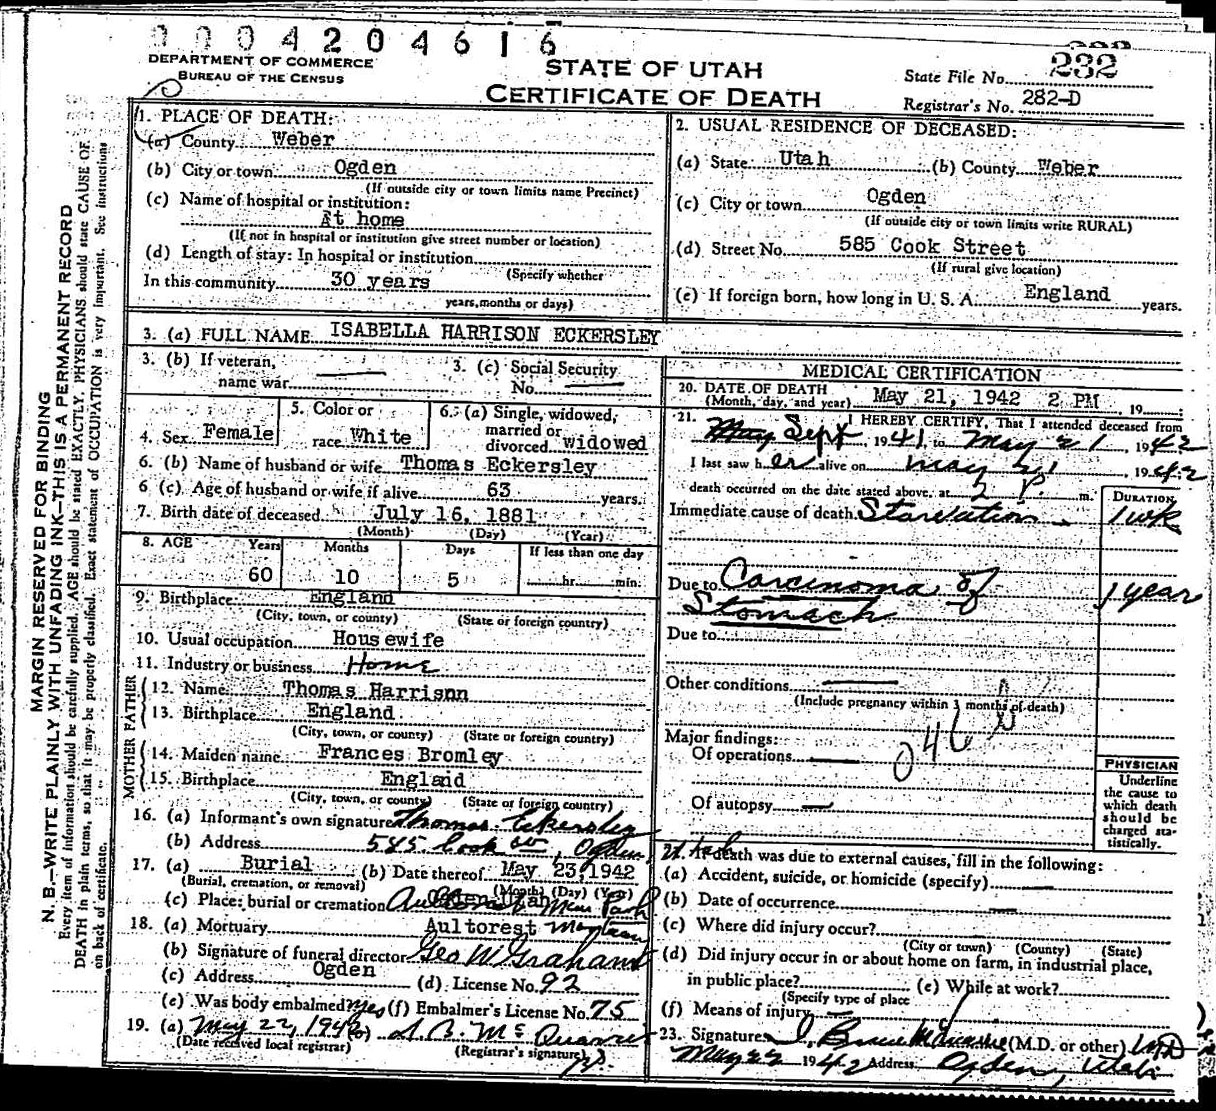 0004204616
DEPARTMENT OF COMMERCE
BUREAU OF THE CENSUS
STATE OF UTAH
CERTIFICATE OF DEATH
State File No. 232
Registrar's No. 282-D
MARGIN RESERVED FOR BINDING
N. B.—WRITE PLAINLY WITH UNFADING INK—THIS IS A PERMANENT RECORD
Every item of information should be carefully supplied. AGE should be stated EXACTLY. PHYSICIANS should state CAUSE OF
DEATH in plain terms, so that it may be properly classified. Exact statement of OCCUPATION is very important. See instructions
on back of certificate.
1. PLACE OF DEATH:
(a) County Weber
(b) City or town Ogden
(If outside city or town limits name Precinct)
(c) Name of hospital or institution:
At home
(If not in hospital or institution give street number or location)
(d) Length of stay: In hospital or institution
(Specify whether
In this community 30 years
years, months or days)
2. USUAL RESIDENCE OF DECEASED:
(a) State Utah (b) County Weber
(c) City or town Ogden
(If outside city or town limits write RURAL)
(d) Street No. 585 Cook Street
(If rural give location)
(e) If foreign born, how long in U. S. A. England years.
3. (a) FULL NAME ISABELLA HARRISON ECKERSLEY
3. (b) If veteran, name war — 3. (c) Social Security No. —
4. Sex Female 5. Color or race White 6. (a) Single, widowed, married or divorced widowed
6. (b) Name of husband or wife Thomas Eckersley
6 (c) Age of husband or wife if alive 63 years.
7. Birth date of deceased July 16, 1881
(Month) (Day) (Year)
8. AGE Years Months Days If less than one day
60 10 5 hr. min.
9. Birthplace England
(City, town, or county) (State or foreign country)
10. Usual occupation Housewife
11. Industry or business Home
FATHER
12. Name Thomas Harrison
13. Birthplace England
(City, town, or county) (State or foreign country)
MOTHER
14. Maiden name Frances Bromley
15. Birthplace England
(City, town, or county) (State or foreign country)
16. (a) Informant's own signature Thomas Eckersley
(b) Address 585 Cook St, Ogden, Utah
17. (a) Burial (b) Date thereof May 23, 1942
(Burial, cremation, or removal) (Month) (Day) (Year)
(c) Place: burial or cremation Ogden Utah
18. (a) Mortuary Aultorest
(b) Signature of funeral director Geo W Graham
(c) Address Ogden (d) License No. 92
(e) Was body embalmed yes (f) Embalmer's License No. 75
19. (a) May 22, 1942 (b)
(Date received local registrar) (Registrar's signature)
MEDICAL CERTIFICATION
20. DATE OF DEATH
(Month, day, and year) May 21, 1942 2 PM, 19
21. I HEREBY CERTIFY, That I attended deceased from
Sept, 1941, to May 21, 1942
I last saw her alive on May 21 1942
death occurred on the date stated above, at 2 P. m.
DURATION
Immediate cause of death Starvation 1 wk
Due to Carcinoma of 1 year
Stomach
Due to
Other conditions —
(Include pregnancy within 3 months of death)
046 b
Major findings:
Of operations —
Of autopsy —
PHYSICIAN
Underline
the cause to
which death
should be
charged sta-
tistically.
22. If death was due to external causes, fill in the following:
(a) Accident, suicide, or homicide (specify)
(b) Date of occurrence
(c) Where did injury occur?
(City or town) (County) (State)
(d) Did injury occur in or about home on farm, in industrial place,
in public place? (e) While at work?
(Specify type of place
(f) Means of injury
23. Signature (M.D. or other) MD
May 22 1942 Address Ogden, Utah